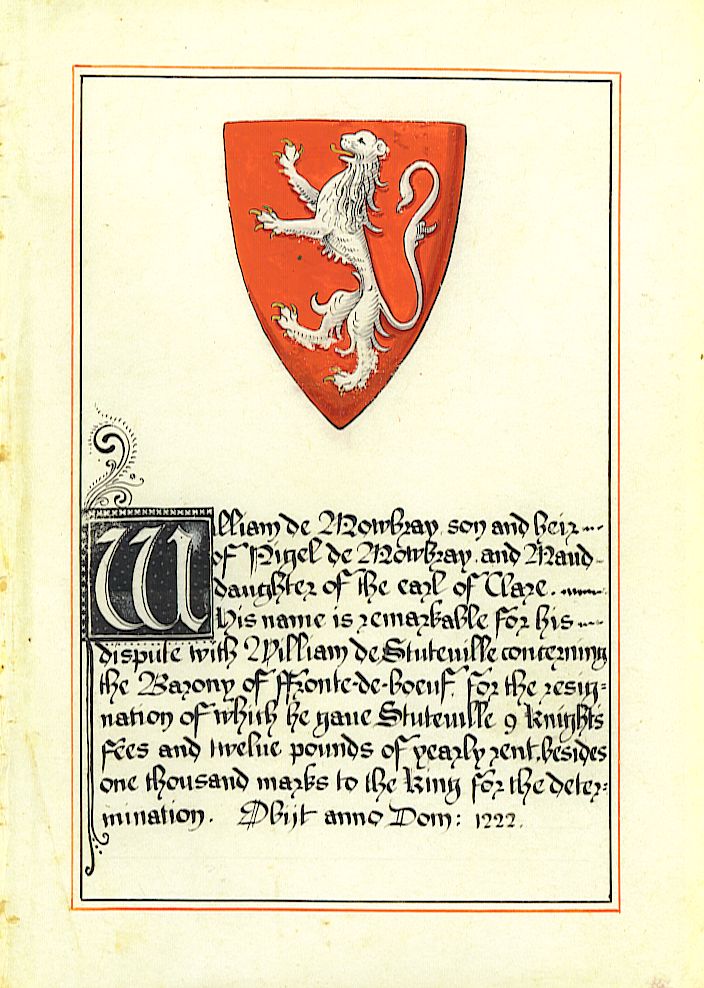 William de Mowbray son and heir
of Nigel de Mowbray. and Maud
daughter of the earl of Clare.
His name is remarkable for his
dispute with William de Stuteuille concerning
the Barony of ffronte-de-boeuf. for the resig:
nation of which he gaue Stuteuille 9 Knights
fees and twelue pounds of yearly rent. besides
one thousand marks to the King for the deter:
mination. Obijt anno Dom: 1222.